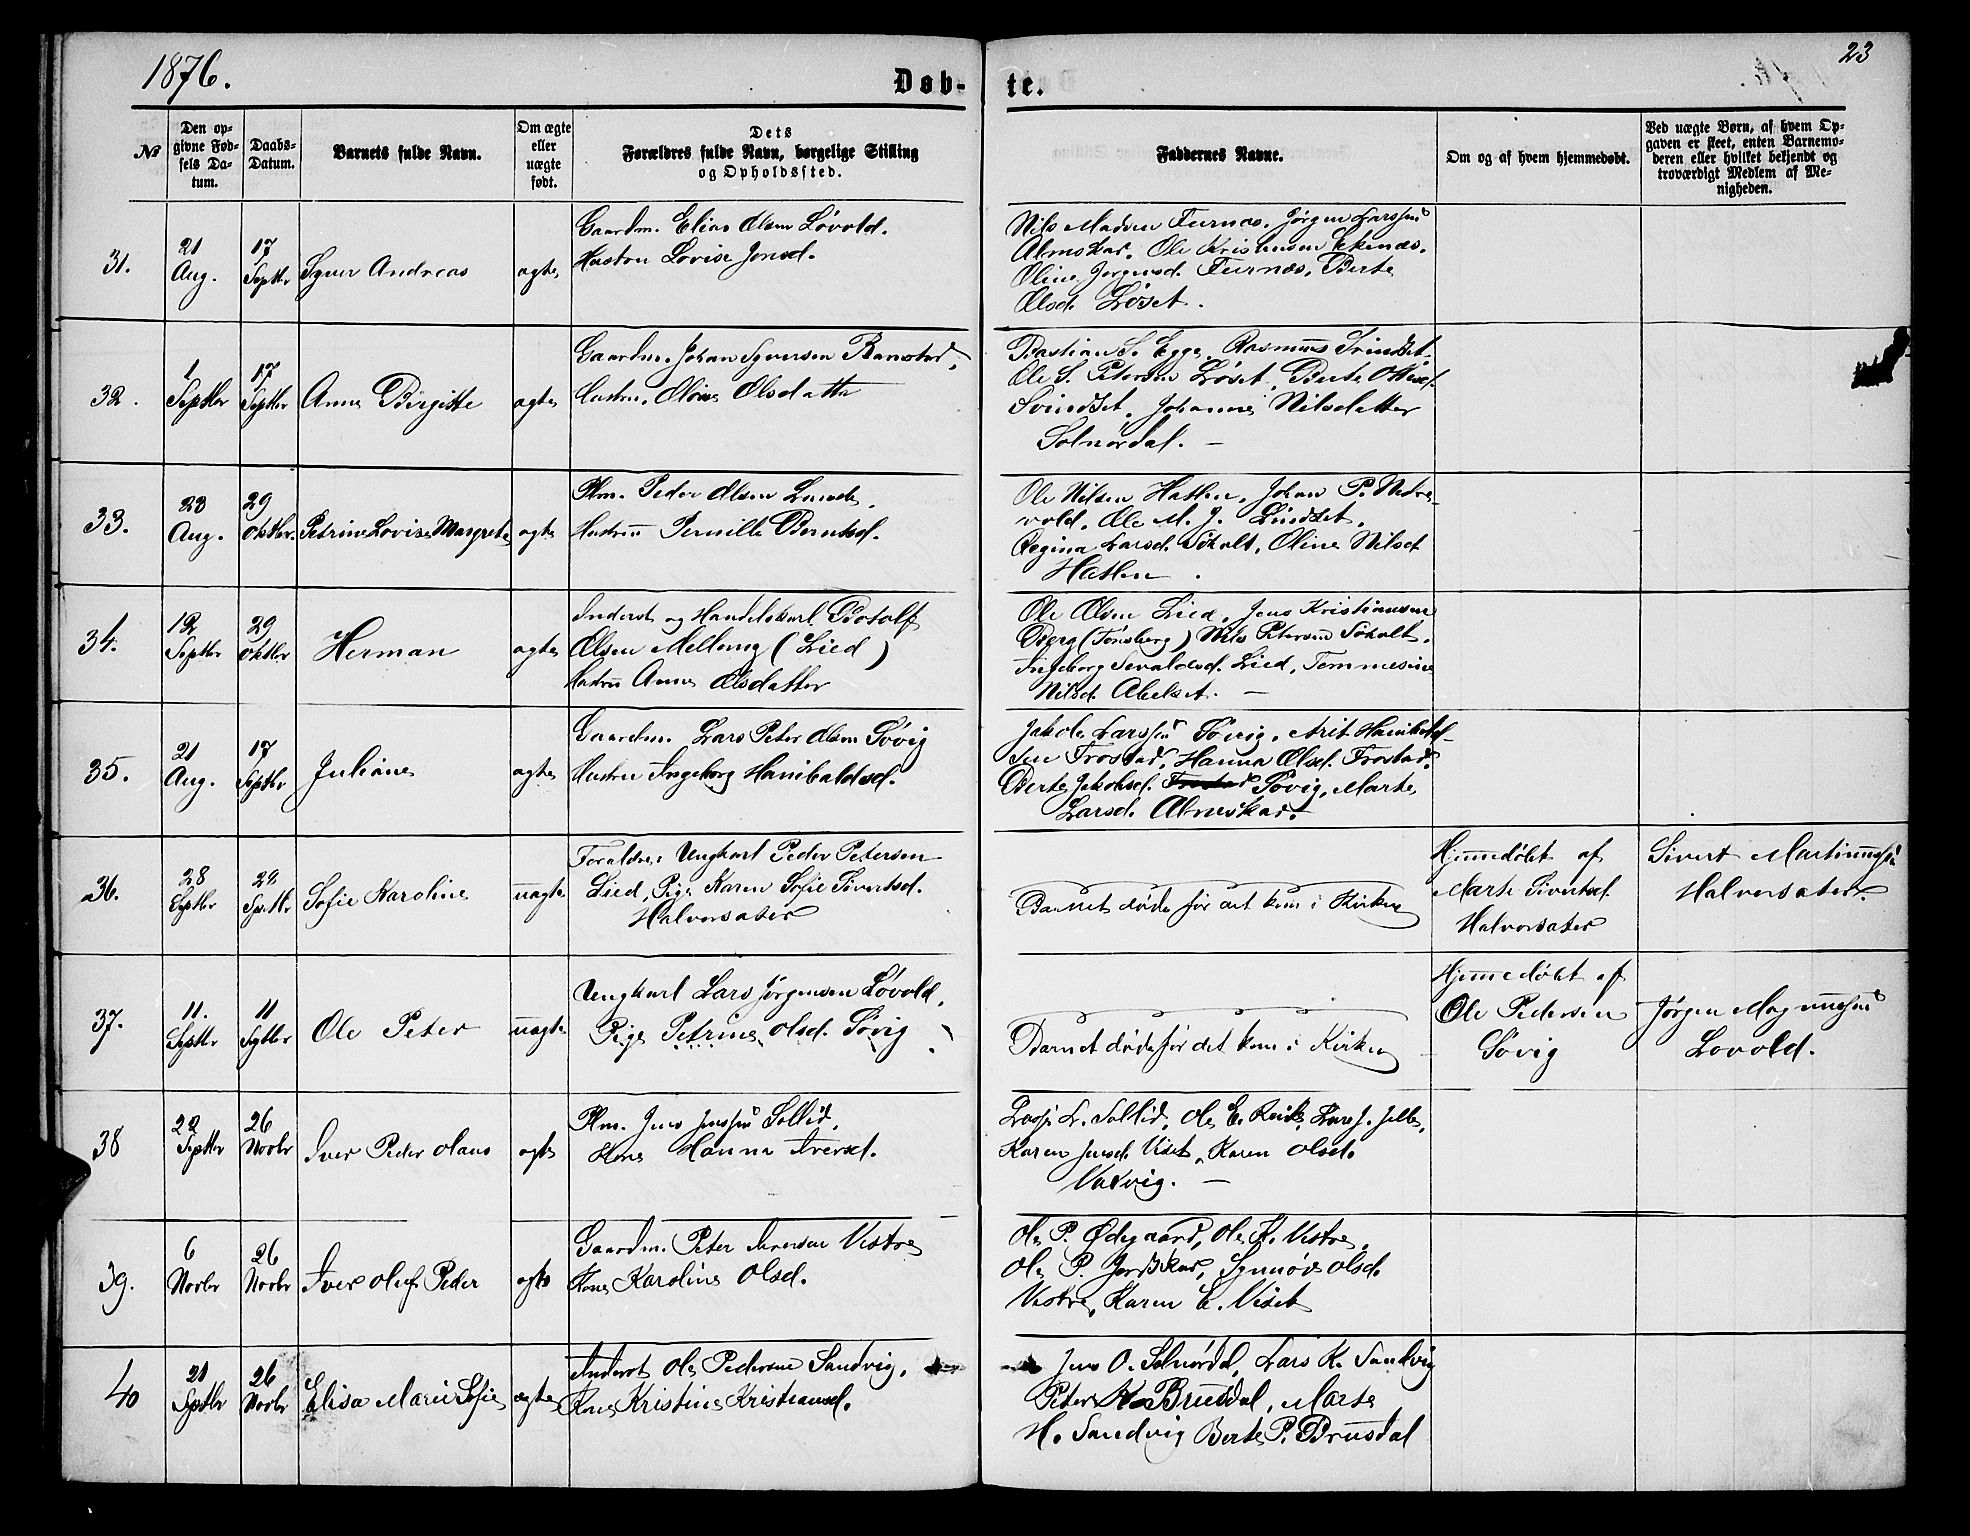 1876.
Døb-
te.
23
No
Den op-
givne Fød-
sels Da-
tum.
Daabs-
Datum.
Barnets fulde Navn.
Om ægte
eller
uægte
født.
Dets
Forældres fulde Navn, borgelige Stilling
og Opholdssted.
Faddernes Navne.
Om og af hvem hjemmedøbt.
Ved uægte Børn, af hvem Op-
gaven er skeet, enten Barnemo-
deren eller hvilket bekjendt og
troværdigt Medlem af Me-
nigheden.
31.
21
Aug.
17
Septbr
Syver Andreas
ægte
Gaardm. Elias Olsen Løvold.
Hustru Lovise Jensd.
Nils Madsen Furnæs, Jørgen Larssen
Almskar. Ole Kristensen Ekenæs.
Oline Jørgensd. Furnæs, Berte
Olsd. Løset.
32.
1
Septbr
17
Septbr
Anne Birgitte
ægte
Gaardm. Johan Syversen Ramstad,
Hustru. Oline Olsdatter
Bastian S. Egge, Rasmus Svindset,
Ole S. Petersen Løset, Berte Ottesd.
Svindset, Johanne Nilsdatter
Solnørdal. —
33.
23
Aug.
29
Oktbr.
Petrine Lovise Margrete
ægte
Plm. Peder Olsen Lande.
Hustru Pernille Berntsd.
Ole Nilsen Hatlen, Johan P. Nedre-
vold. Ole M. J. Lindset.
Regina Larsd. Skolt, Oline Nilsd
Hatlen.
34.
12
Septbr
29
Oktbr
Herman
ægte
Inderst og Handelskarl Botolf
Olsen Mellang (Lied)
Hustru Anne Olsdatter
Ole Olsen Lied, Jens Kristiansen
Berg (Tønsberg) Nils Petersen Skolt.
Ingeborg Sevaldsd. Lied, Tommesine
Nilsd. Abelset. —
35.
21
Aug.
17
Septbr
Juliane
ægte
Gaardm. Lars Peter Olsen Søvig
Hustru Ingeborg Hanibaldsd.
Jakob Larssen Søvig, Arit Hanibald-
sen Frostad, Hanna Olsd. Frostad.
Berte Jakobsd. Frostad Søvig, Marte
Larsd. Almeskar.
36.
28
Septbr
29
Septbr
Sofie Karoline
uægte
Forældre: Ungkarl Peder Petersen
Lied, Pige Karen Sofie Sivertsd.
Halvorsæter
Barnet døde før det kom i Kirken
Hjemmedøbt af
Marte Sivertsd.
Halvorsæter
Sivert Martinussen
Halvorsæter.
37.
11.
Septbr
11
Septbr
Ole Peter
uægte
Ungkarl Lars Jørgensen Løvold,
Pige Petrine Olsd. Søvig
Barnet døde før det kom i Kirken
Hjemmedøbt af
Ole Pedersen
Søvig
Jørgen Magnussen
Lovold.
38
22
Septbr
26
Novbr
Iver Peder Olaus
ægte
Plm. Jens Jenssen Sollid.
Kone Hanna Iversd.
L. Sollid, Ole E. Reite, Lars J.
Karen Jensd. Viset, Karen Olsd.
Vatvig. —
39.
6
Novbr
26
Novbr
Iver Oluf Peder
ægte
Gaardm. Peter Iversen Vestre
Kone Karoline Olsd.
Ole P. Ødegaard, Ole K. Vestre,
Ole P. Jordskar, Synnøve Olsd.
Vestre, Karen E. Viset
40
21
Septbr
26
Novbr
Elisa Marie Sofie
ægte
Inderst Ole Pedersen Sandvig,
Kone Kristine Kristiansd.
Jens O. Solnørdal, Lars K. Sandvig
Peter Brusdal, Marte
H. Sandvig Berte P. Brusdal